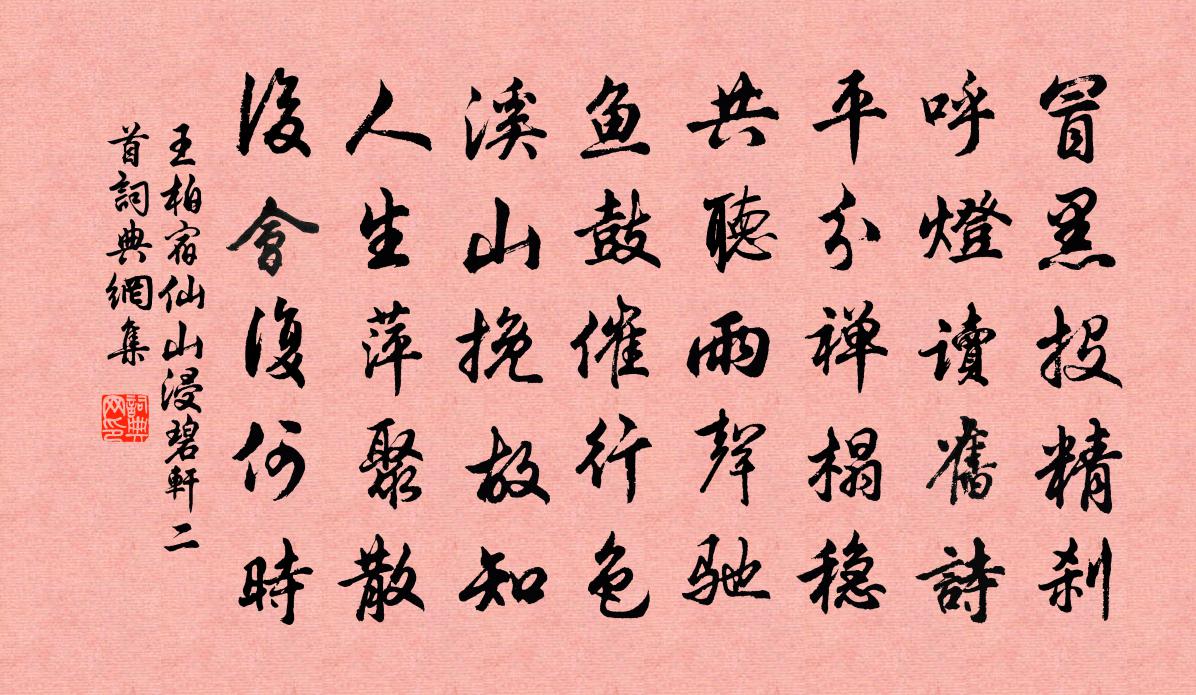 冒黑投精刹
呼燈讀舊詩
平分禅榻穏
共聽雨聲馳
魚鼓催行色
溪山挽故知
人生萍聚散
後會復何時
王柏宿仙山浸碧軒二
首詞典網集
詞典网印